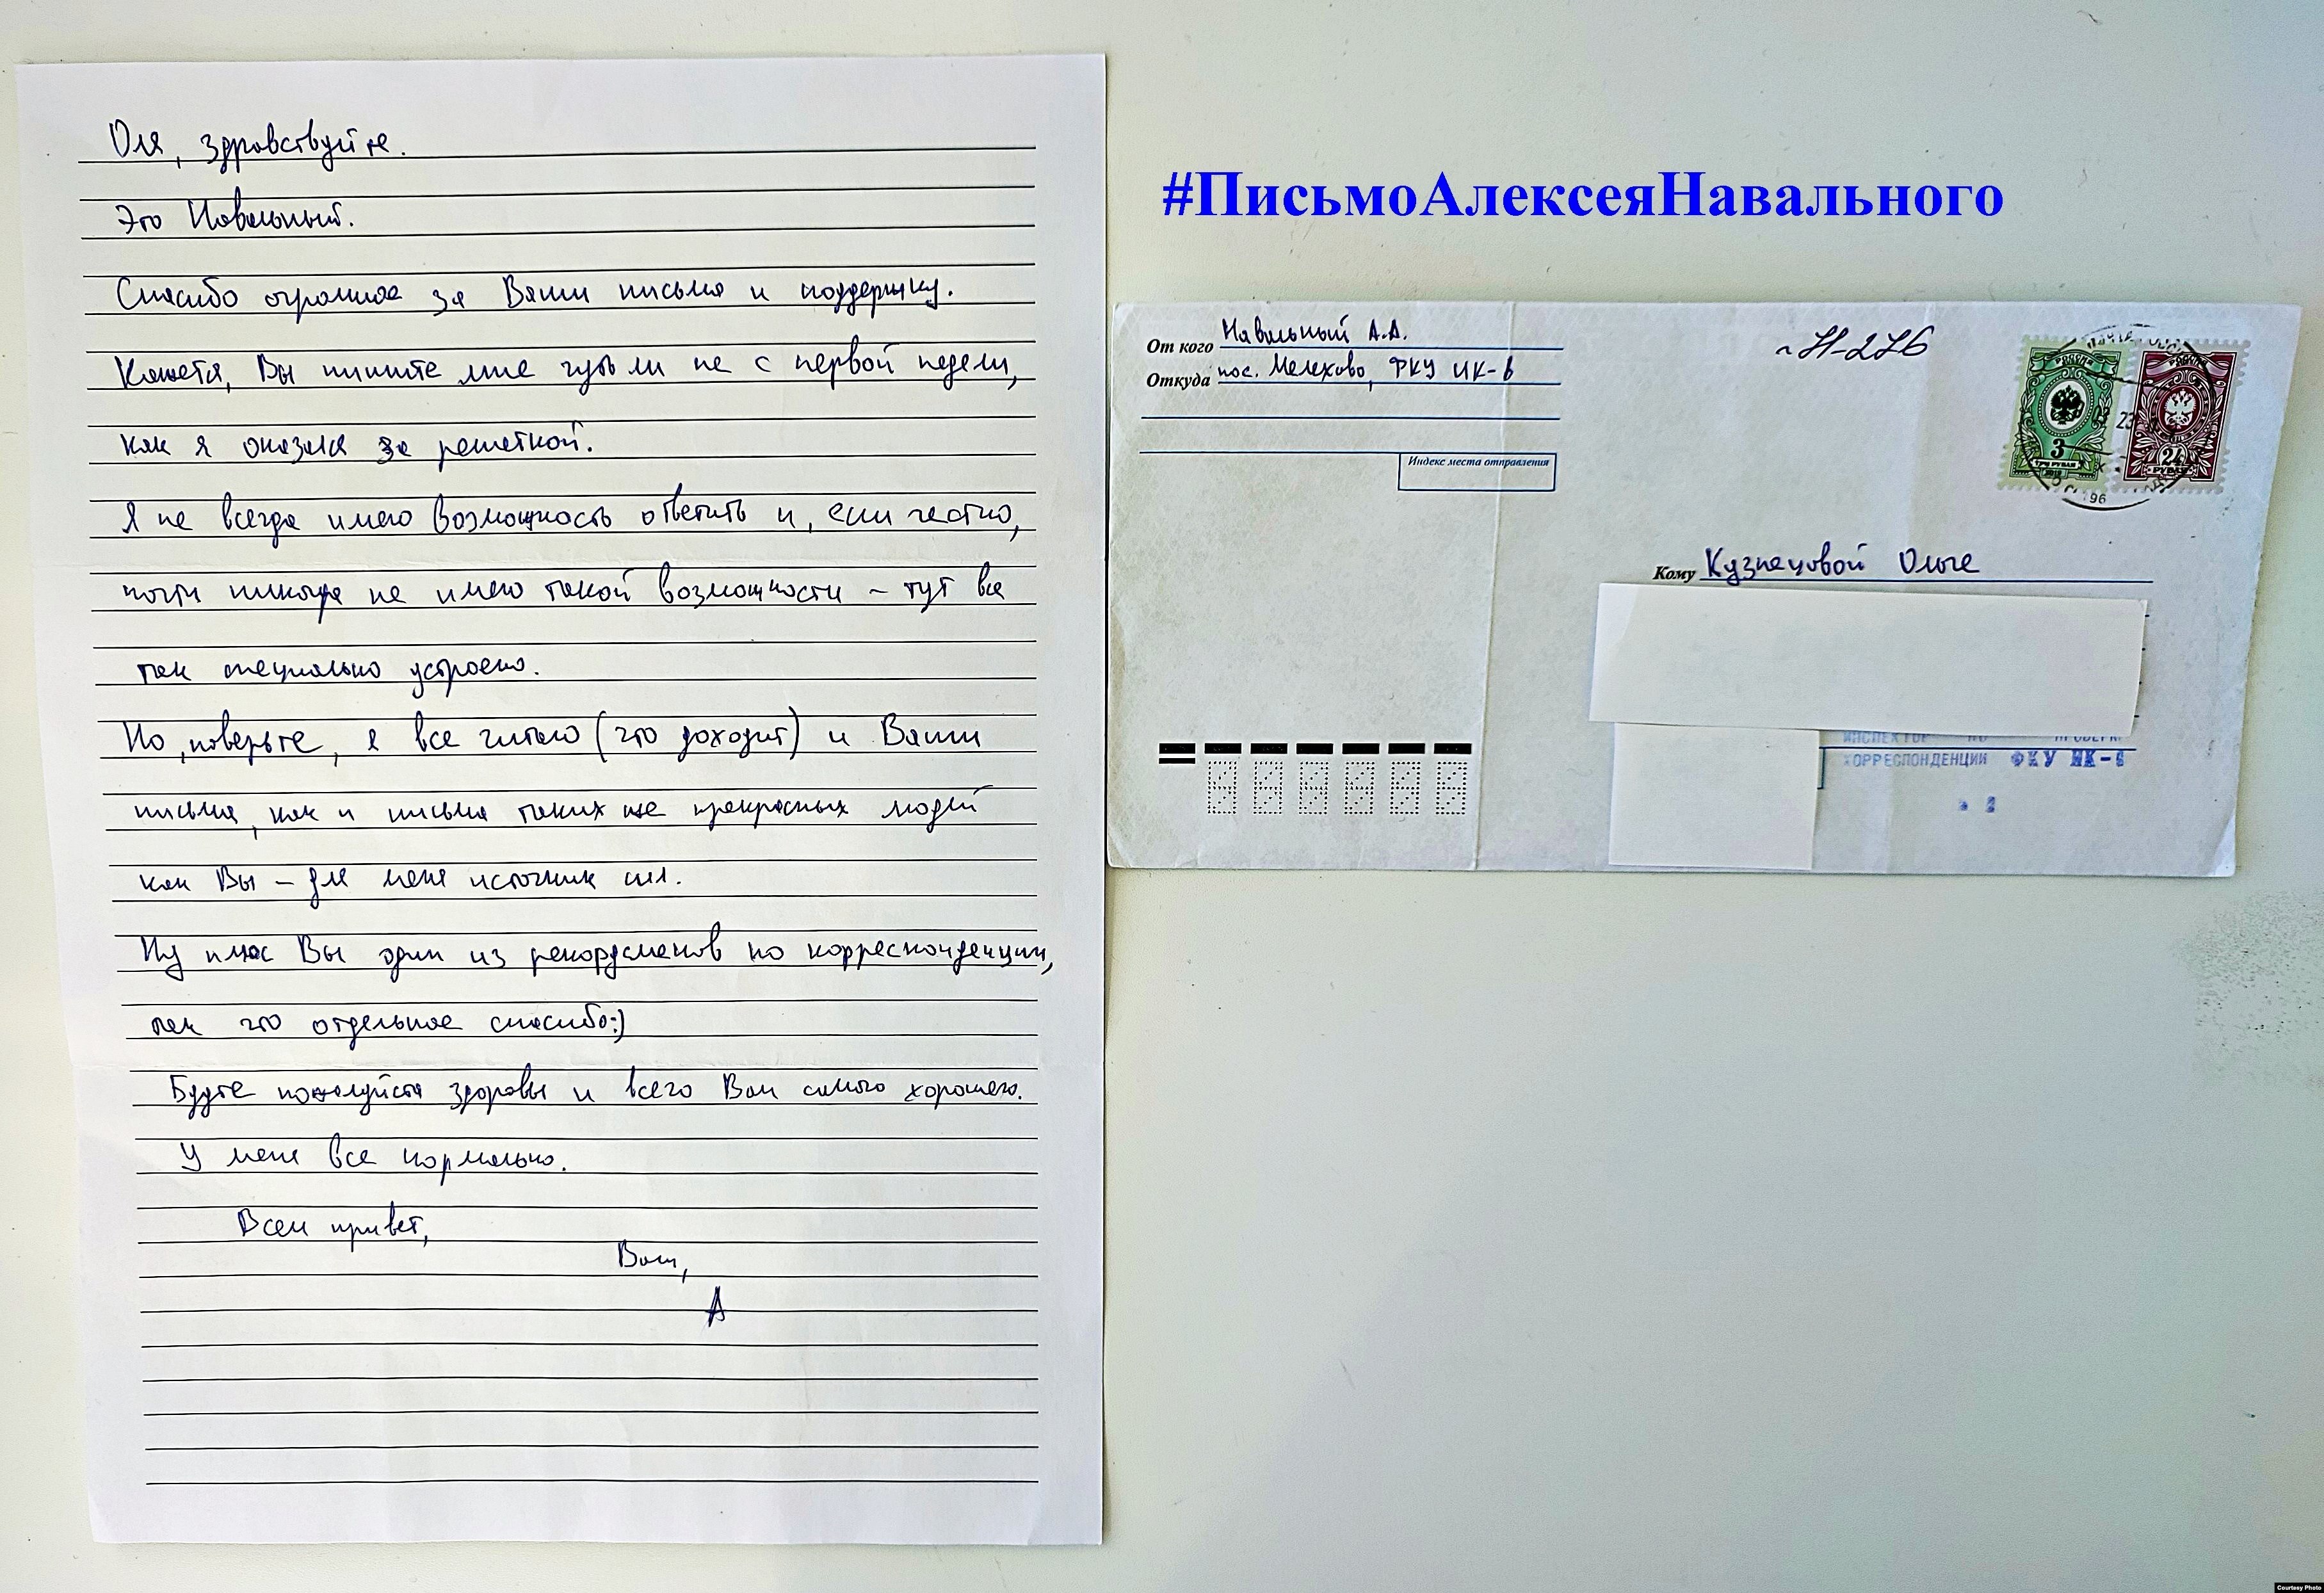 Оля, здравствуйте.
Это Навальный.
Спасибо огромное за Ваши письма и поддержку.
Кажется, Вы пишите мне чуть ли не с первой недели,
как я оказался за решеткой.
Я не всегда имею возможность ответить и, если честно,
почти никогда не имею такой возможности – тут все
так специально устроено.
Но, поверьте, я все читаю (что доходит) и Ваши
письма, как и письма таких же прекрасных людей
как Вы – для меня источник сил.
Ну плюс Вы один из рекордсменов по корреспонденции,
так что отдельное спасибо:)
Будьте пожалуйста здоровы и всего Вам самого хорошего.
У меня все нормально.
Всем привет,
Ваш,
А
#ПисьмоАлексеяНавального
От кого Навальный А.А.
Откуда пос. Мелехово, ФКУ ИК-6
Индекс места отправления
РОССИЯ
3
ТРИ РУБЛЯ
2019
РОССИЯ
24
РУБЛЯ
96
Кому Кузнецовой Ольге
ИНСПЕКТОР ПО ПРОВЕРК
КОРРЕСПОНДЕНЦИИ ФКУ ИК-6
Courtesy Photo